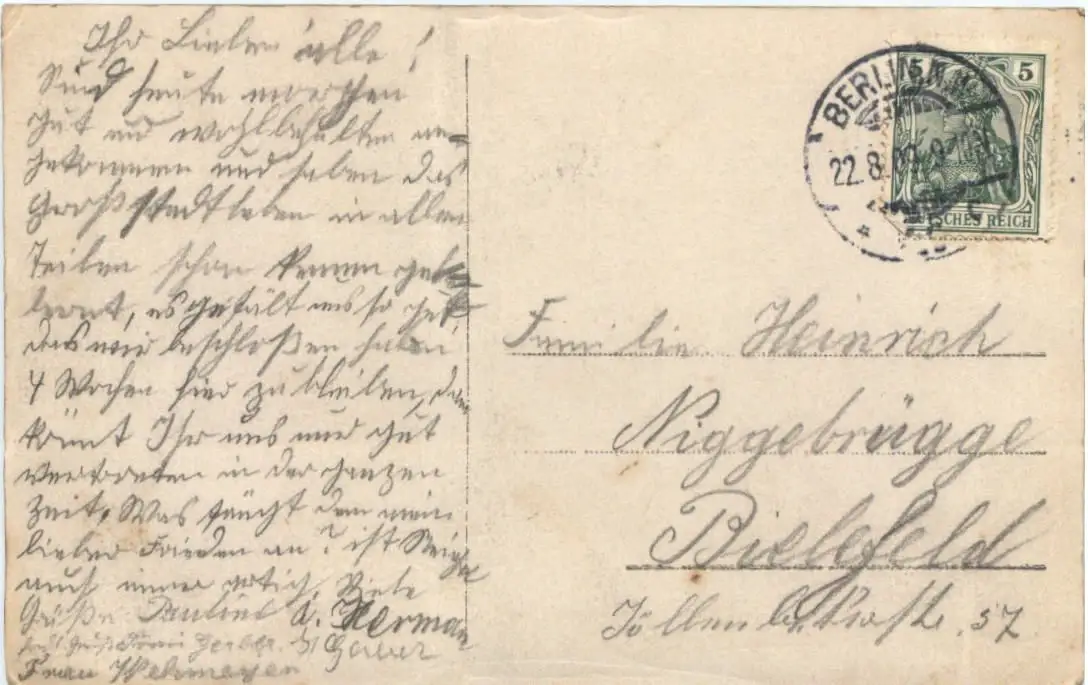 Ihr Lieben alle!
Sind heute morgen
gut und wohlbehalten an=
gekommen und haben das
Großstadtleben in allen
Teilen schon kennen ge
lernt, es gefält uns so gut,
das wir beschloßen haben
4 Wochen hier zu bleiben, da
könnt Ihr uns nur gut
vertreten in der ganzen
Zeit. Was fängt den mein
lieber Frieden an? ist
auch immer artig. Viele
Grüße Pauline u. Herman
Frau Wehmeyer
BERLIN N.W.
22.8.09. 9
5 5
DEUTSCHES REICH
Familie Heinrich
Niggebrügge
Bielefeld
Jöllenb. Straße. 57